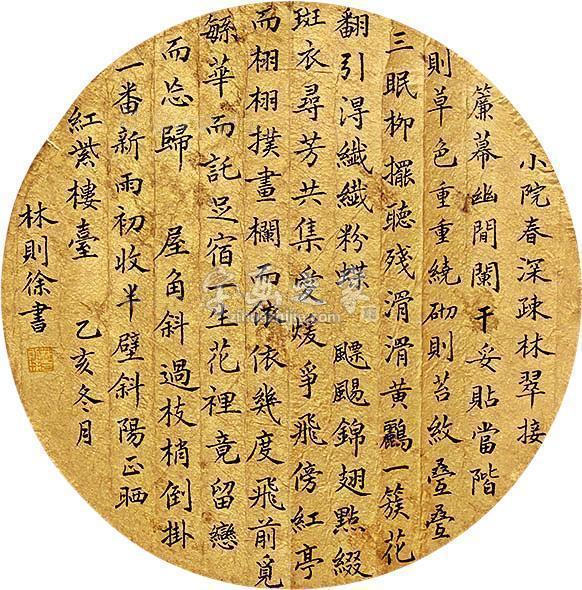 小院春深疎林翠接
簾幕幽閒闌干妥貼當階
則草色重重繞砌則苔紋疊疊
三眠柳擺聽殘滑滑黃鸝一簇花
翻引淂纖纖粉蝶 飃颺錦翅點綴
斑衣尋芳共集愛煖爭飛傍紅亭
而栩栩撲畫欄而依依幾度飛前覓
繇華而託足宿一生花裡竟留戀
而忘歸 屋角斜過枝梢倒掛
一番新雨初收半壁斜陽正晒
紅紫樓臺 乙亥冬月
林則徐書